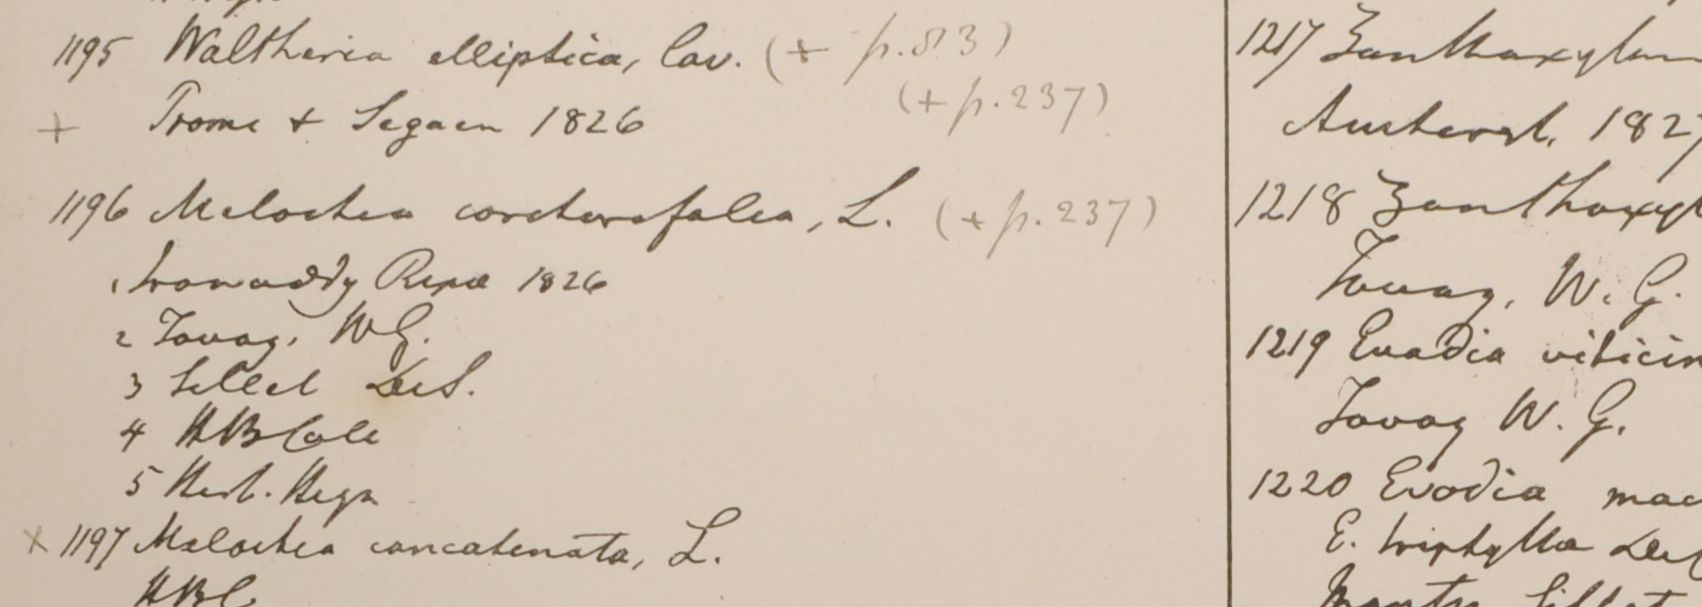 1195 Waltheria elliptica, Cav. (+ p. 83)
(+ p. 237)
+ Prome + Segaen 1826
1196 Melochia corchorifolia, L. (+ p. 237)
1 Irawaddy Ripa 1826
2 Tavoy, W G.
3 Sillet DeS.
4 HBCalc
5 Herb. Heyn
x 1197 Melochia concatenata, L.
HBC
1217 Zanthoxylum
Amherst, 1827
1218 Zanthoxyl
Tavoy, W. G.
1219 Evodia viticin
Tavoy W. G.
1220 Evodia mac
E. triphylla DeC
Sillet